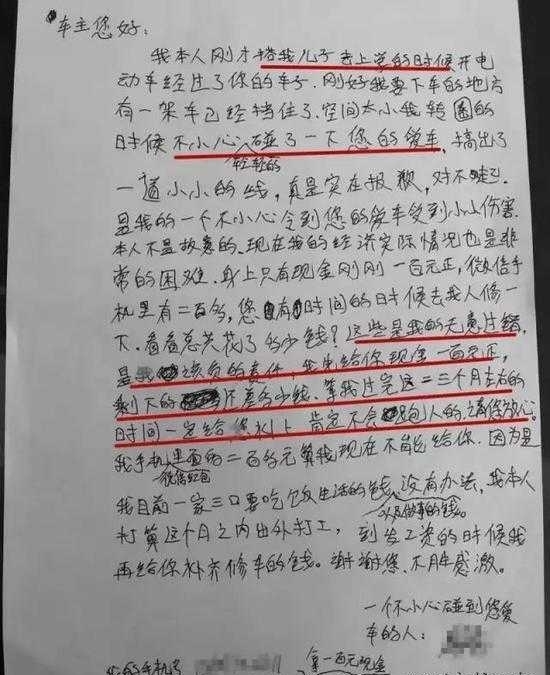 车主您好:
我本人刚才搭我儿子去上学的时候开电
动车经过了你的车子.刚好我要下车的地方
有一架车已经挡住了.空间太小我转圈的
时候不小心碰了一下您的爱车,搞出了
轻轻的
一道小小的线,真是实在报歉,对不起
是我的一个不小心令到您的爱车受到小小伤害.
本人不是故意的.现在我的经济实际情况也是非
常的困难.身上只有现金刚刚一百元正,微信手
机里有二百多,您有时间的时候去找人修一
下.看看总共花了多少钱?这些是我的无意过错.
是我该负的责任,我先给你现金一百元正,
剩下的还差多少钱.等我过完这二三个月左右的
时间一定给您补上肯定不会跑人的.请您放心.
我手机里面的二百多元算我现在不能给你.因为是
微信红包
我目前一家三口要吃饭生活的钱,没有办法,我本人
以及做事的钱。
打算这个月之内出外打工,到发工资的时候我
再给你补齐修车的钱。谢谢您、不胜感激。
一个不小心碰到您爱
车的人:
的手机号
拿一百元现金